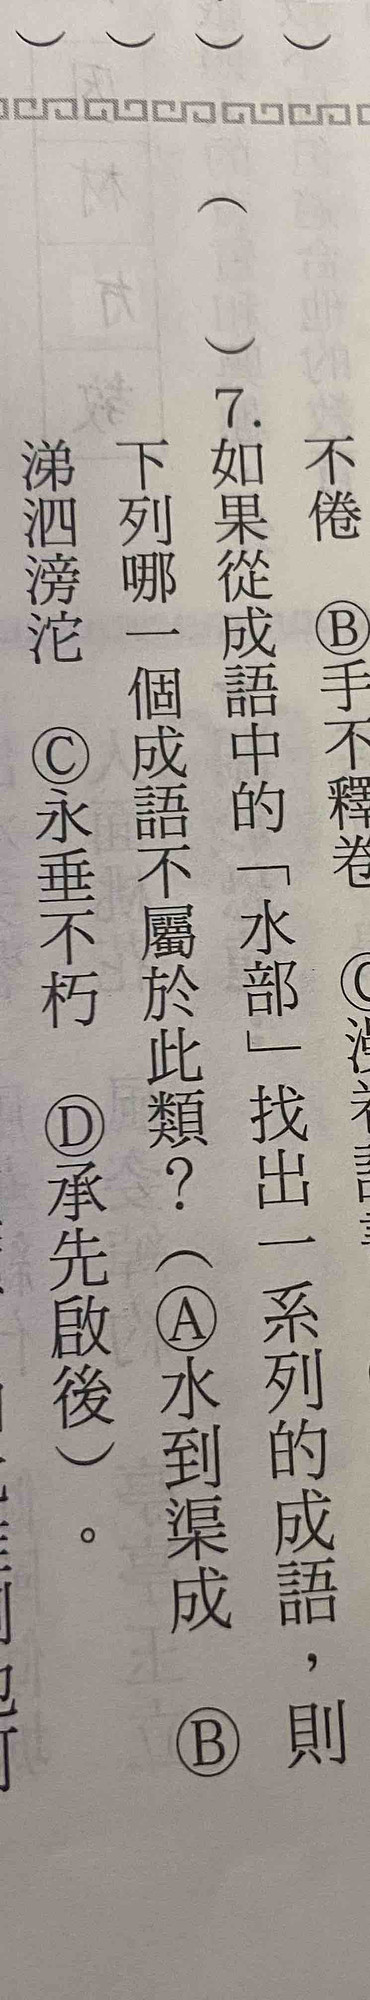 不倦 Ⓑ手不釋卷 Ⓒ漫
（ ）7.如果從成語中的「水部」找出一系列的成語，則
下列哪一個成語不屬於此類？（Ⓐ水到渠成 Ⓑ
涕泗滂沱 Ⓒ永垂不朽 Ⓓ承先啟後）。